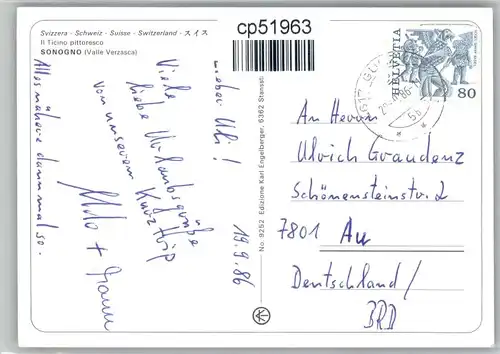 Svizzera - Schweiz - Suisse - Switzerland - スイス
Il Ticino pittoresco
SONOGNO (Valle Verzasca)
cp51963
HELVETIA
80
19.9.86
Lieber Uli!
Viele
liebe Urlaubsgrüße
von unserem Kurztrip
Udo +
Alles nähere dann mal so.
No. 9252 Edizione Karl Engelberger, 6362 Stansstad
An Herrn
Ulrich Graudenz
Schönensteinstr. 2
7801 Au
Deutschland/
BRD